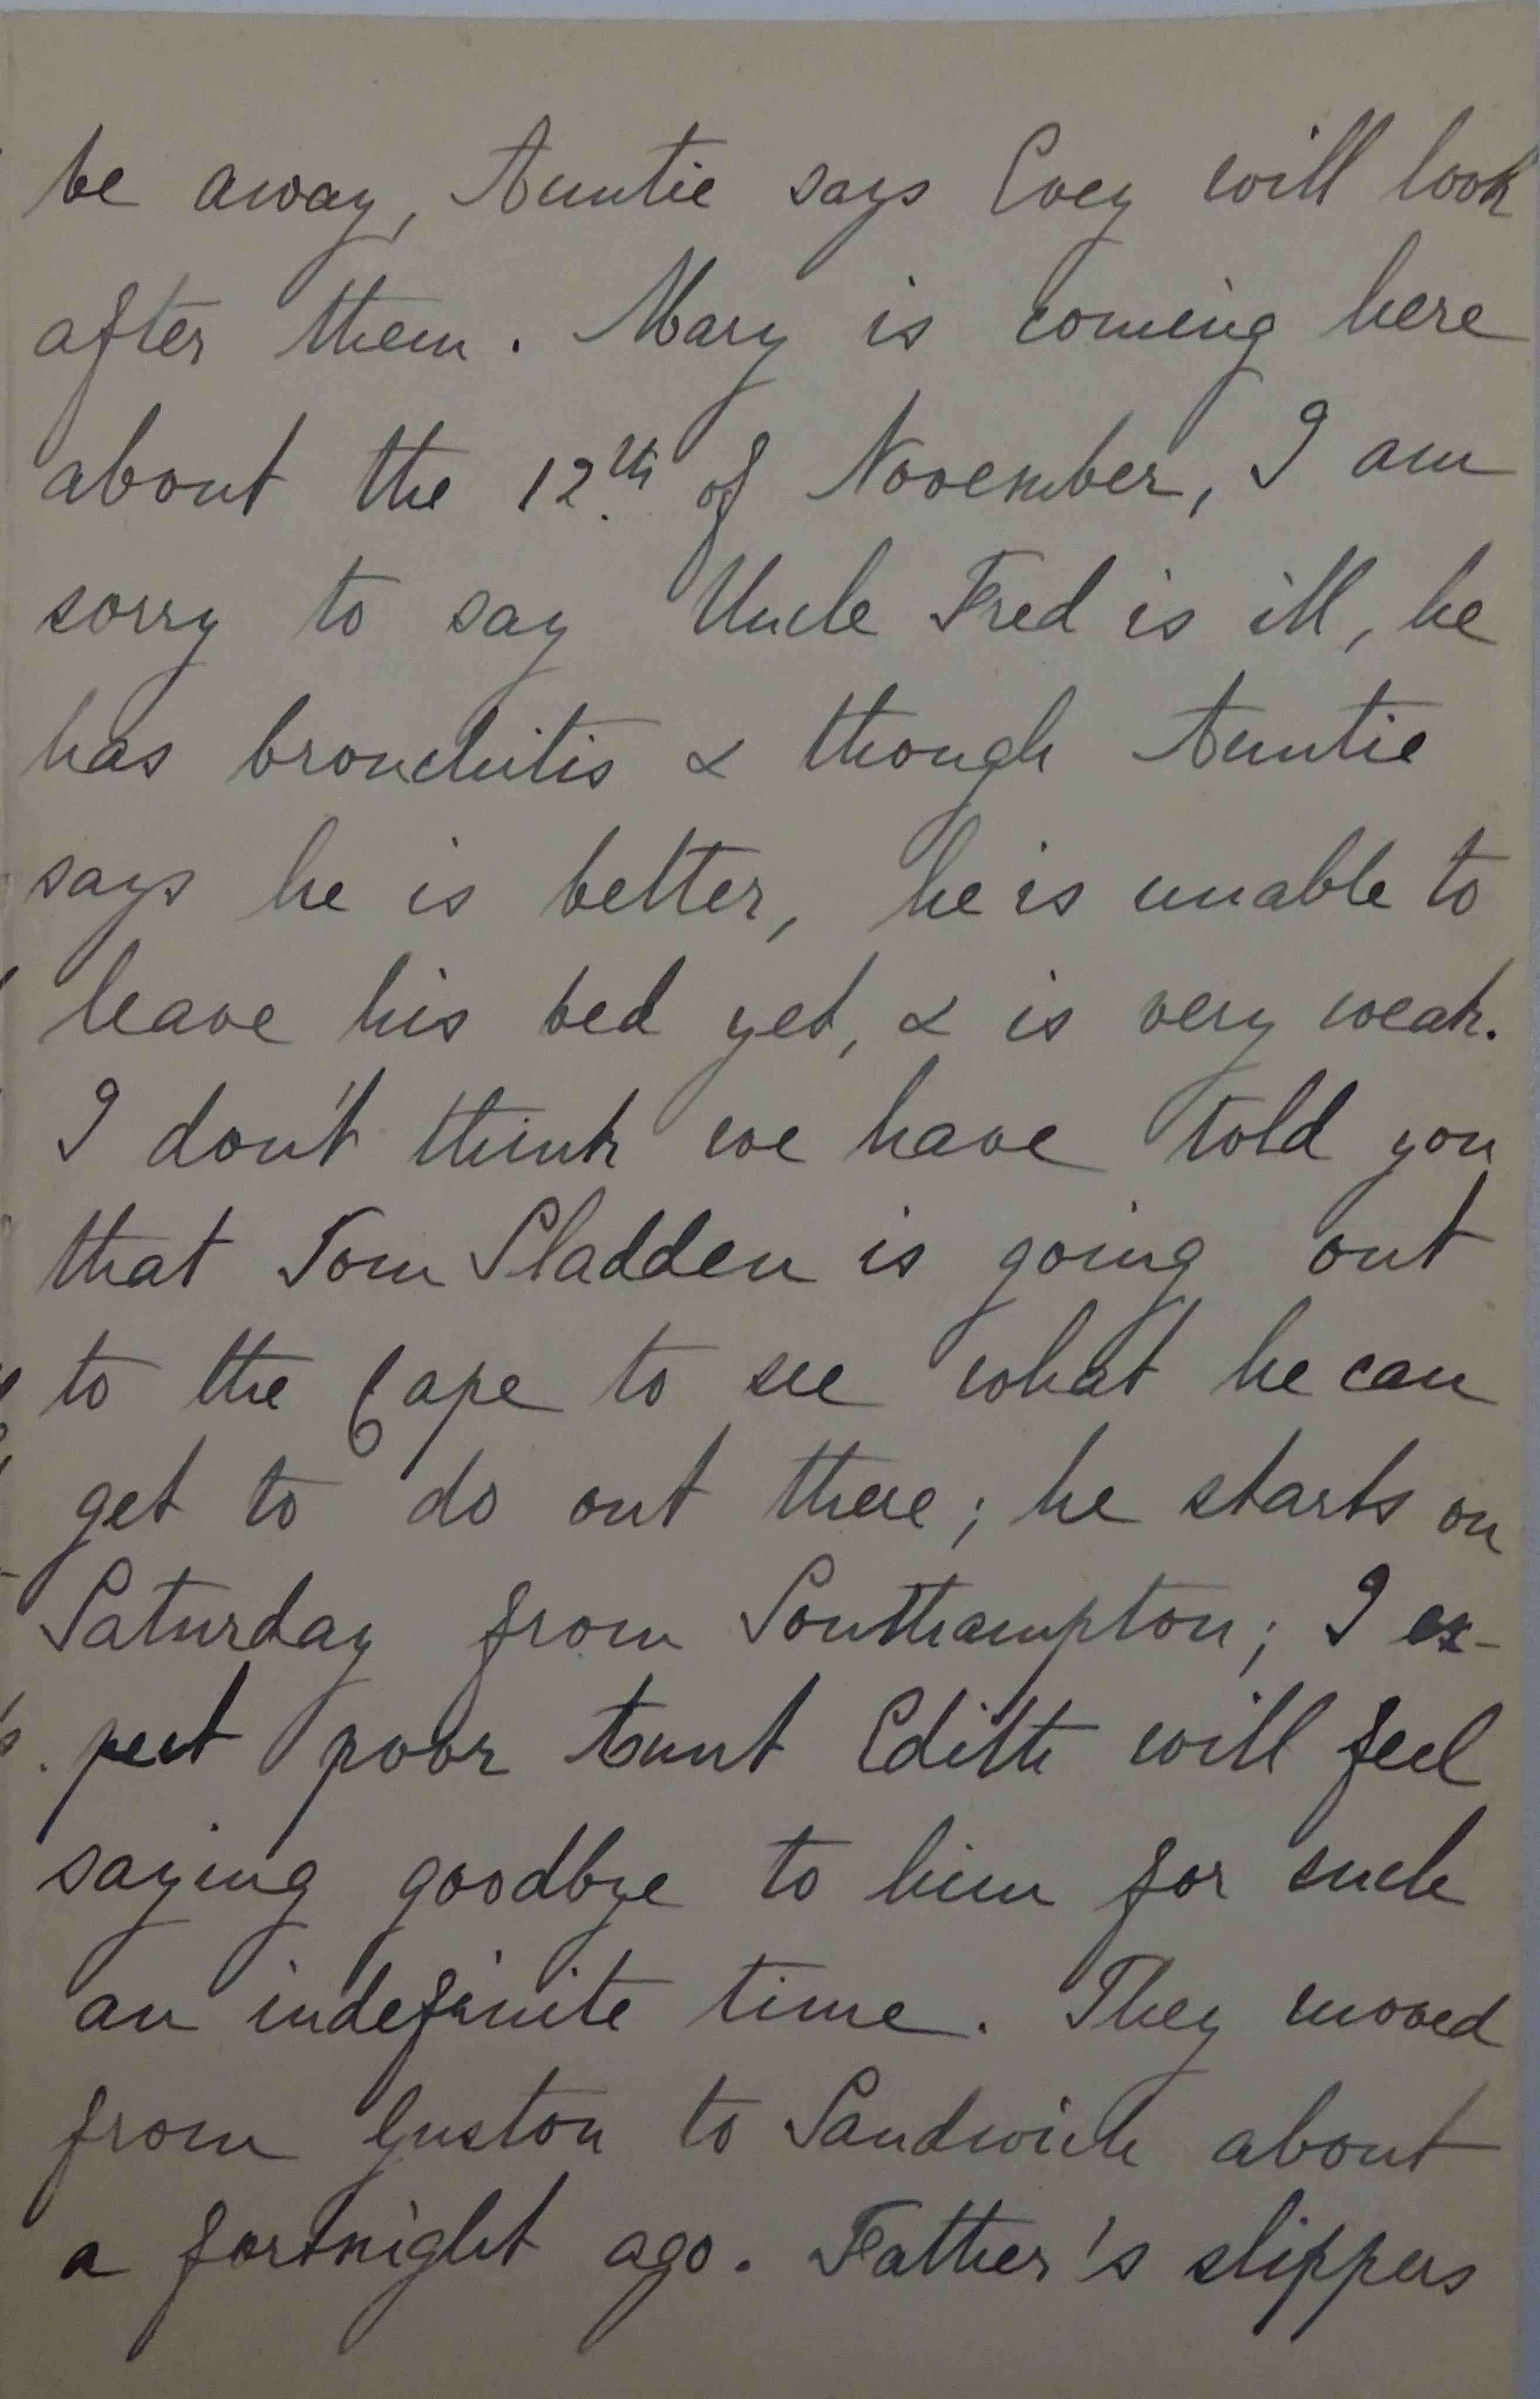 be away, Auntie says Evey will look
after them. Mary is coming here
about the 12th of November, I am
sorry to say Uncle Fred is ill, he
has bronchitis & though Auntie
says he is better, he is unable to
leave his bed yet, & is very weak.
I don't think we have told you
that Tom Sladden is going out
to the Cape to see what he can
get to do out there; he starts on
Saturday from Southampton; I ex-
pect poor Aunt Edith will feel
saying goodbye to him for such
an indefinite time. They moved
from Guston to Sandwich about
a fortnight ago. Father's slippers